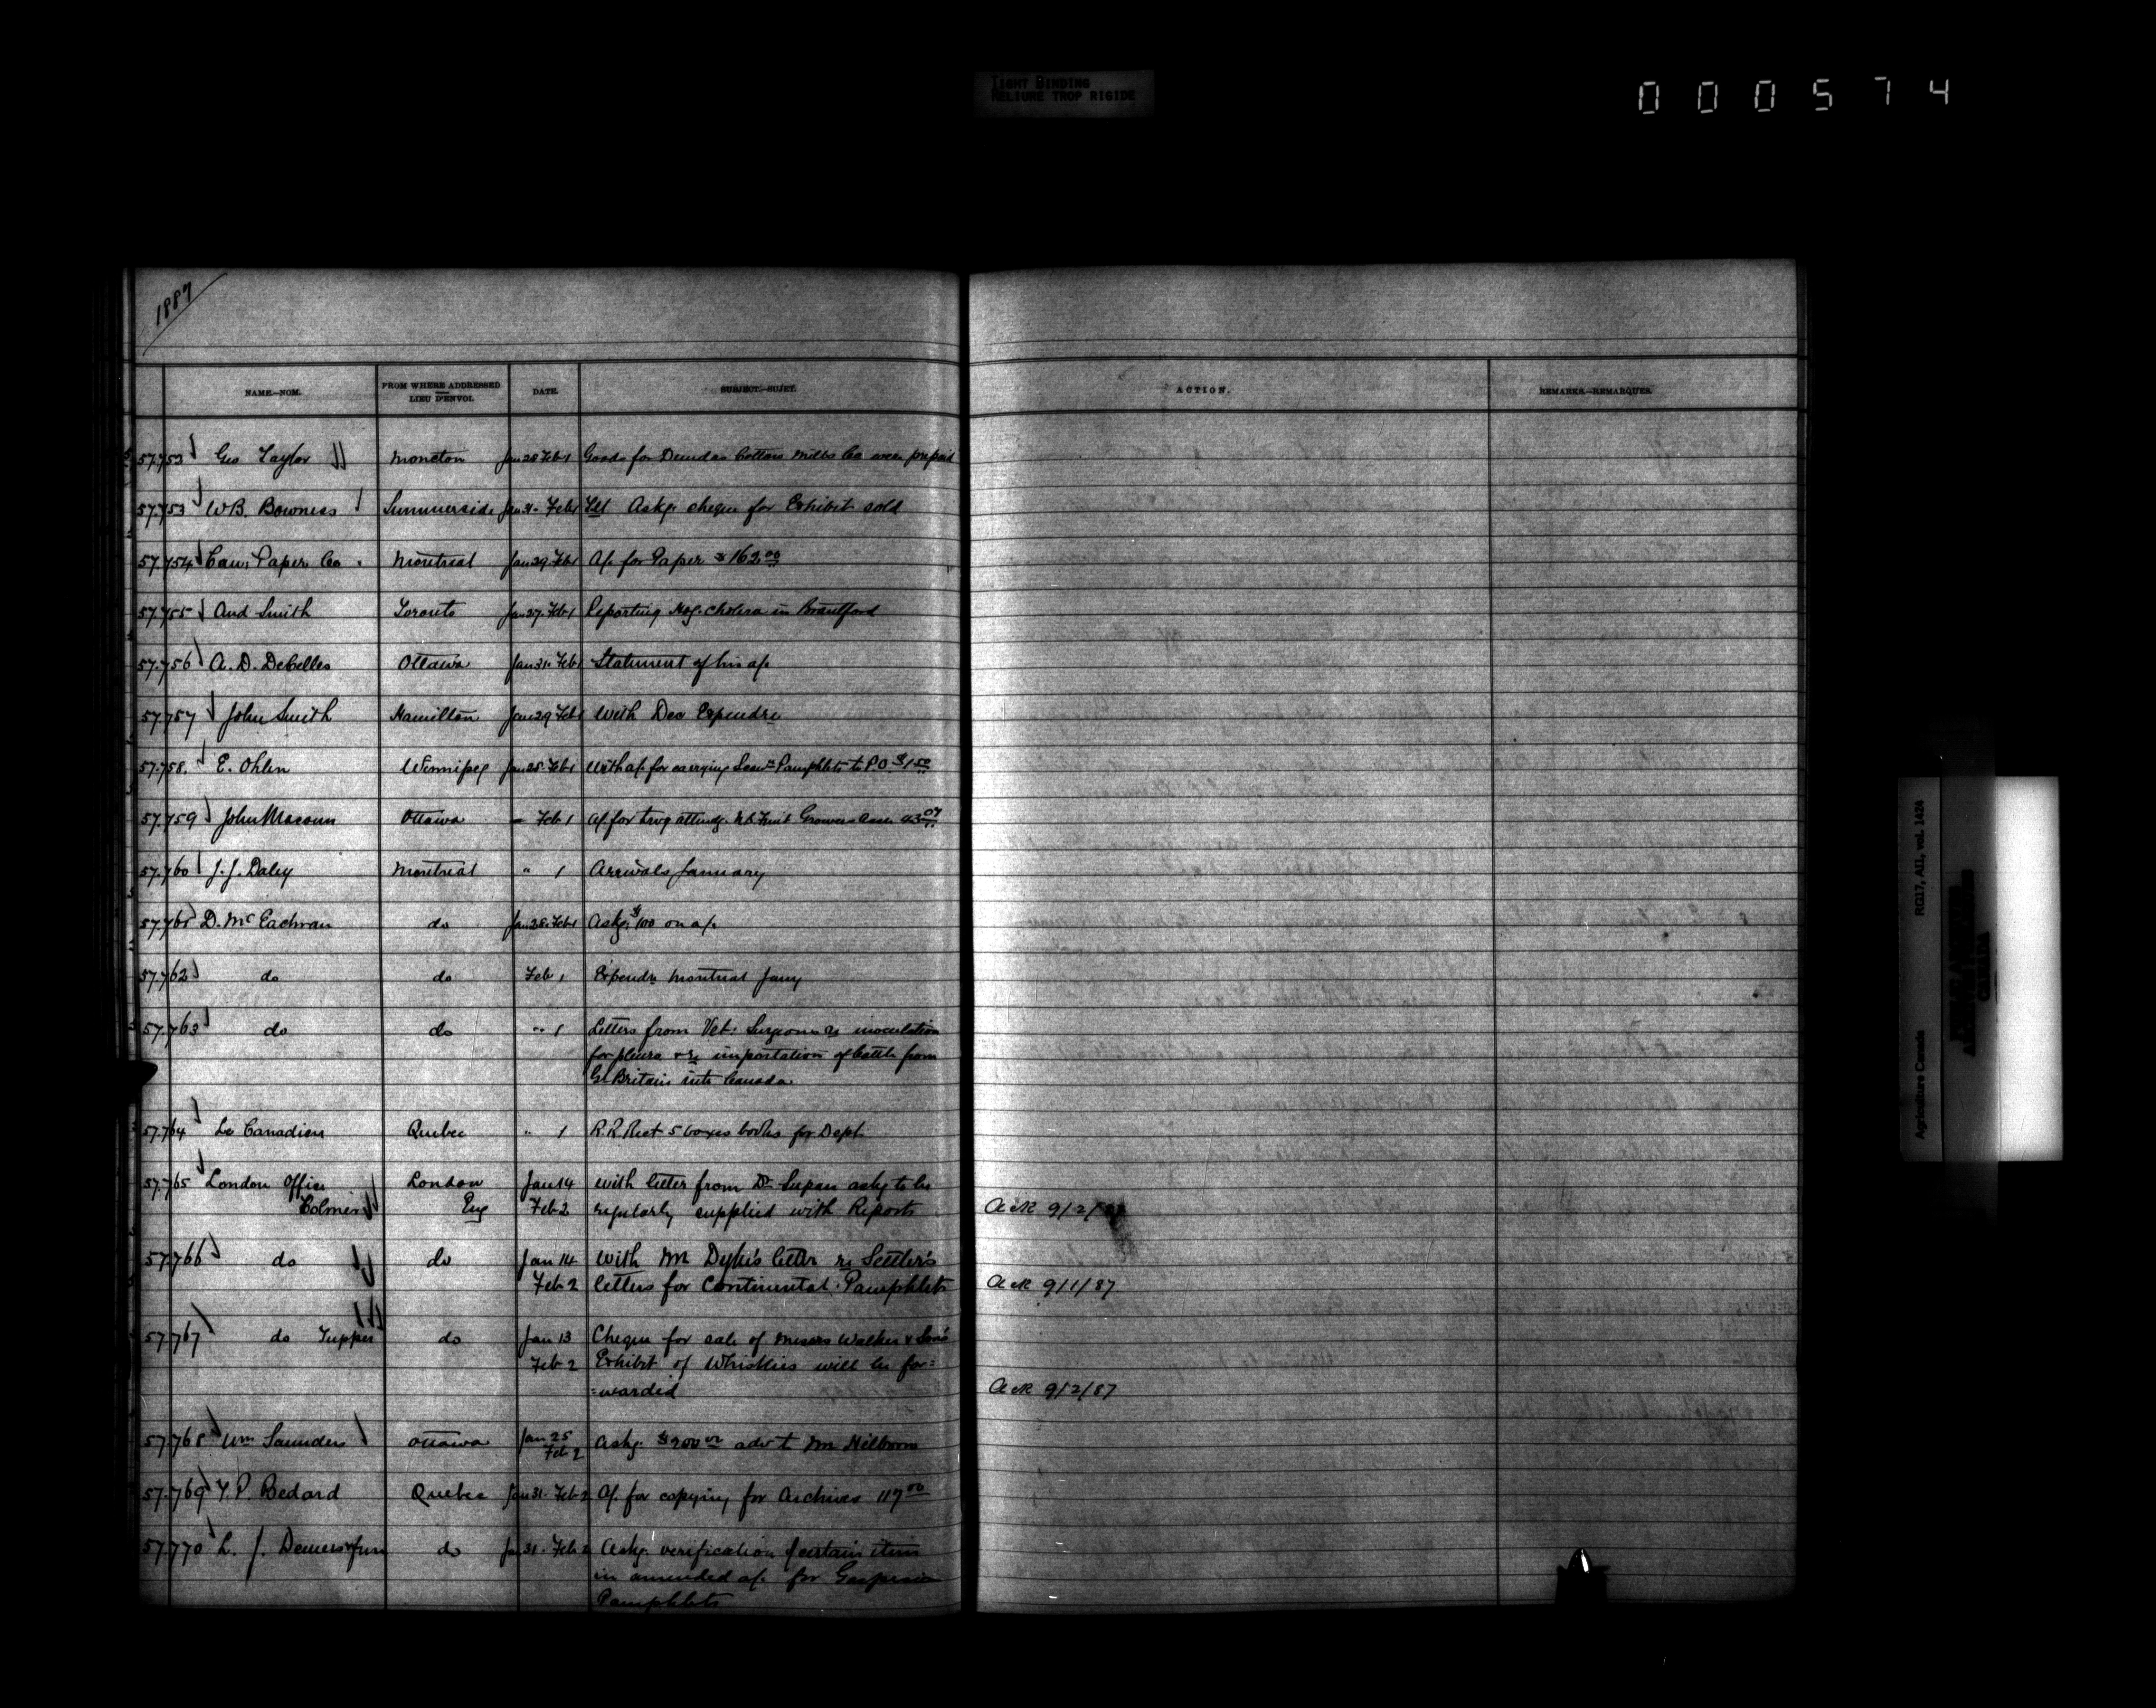 TIGHT BINDING
RELIURE TROP RIGIDE
000574
1887
NAME.—NOM. FROM WHERE ADDRESSED LIEU D'ENVOI. DATE. SUBJECT.—SUJET. ACTION. REMARKS.—REMARQUES.
57.753 Geo Taylor Moncton Jan 28 Feb 1 Goods for Dundas Cotton Mills Co were prepaid
57.753 W B. Bowness Summerside Jan 31 - Feb 1 Tel Askg. cheque for Exhibit sold
57.754 Can. Paper Co Montreal Jan 29 Feb 1 A/. for Paper $162.00
57.755 And Smith Toronto Jan 27. Feb 1 Reporting Hog. cholera in Brantford
57.756 A. D. DeCelles Ottawa Jan 31. Feb 1 Statement of his a/c
57.757 John Smith Hamilton Jan 29 Feb 1 With Dec Expendre
57.758. E. Ohlen Winnipeg Jan 25. Feb 1 With a/. for carrying Pamphlets to P.O. $1.50
57.759 John Macoun Ottawa — Feb 1 A/. for trvg attendg. Fruit Growers Assn
57.760 J. J. Daley Montreal " 1 Arrivals January
57.761 D. McEachran do Jan 28. Feb 1 Askg. $100 on a/c
57.762 do do Feb 1 Expendre Montreal Jany
57.763 do do " 1 Letters from Vet: Surgeons re inoculation
for pleuro & re importation of Cattle from
Gt Britain into Canada.
57.764 Le Canadien Quebec " 1 R.R. Rect 5 boxes books for Dept
57.765 London Office London Jan 14 with letter from Dr Supan askg to be
Colmer Eng Feb 2 regularly supplied with Reports Ack 9/2/87
57.766 do do Jan 14 With Mr Dyke's letter re Settler's
Feb 2 letters for Continental Pamphlets Ack 9/1/87
57.767 do Tupper do Jan 13 Cheque for sale of Messrs Walker & Son's
Feb 2 Exhibit of Whiskies will be for=
=warded Ack 9/2/87
57.768 Wm Saunders Ottawa Jan 25 Askg. $200.00 adv to Mr Hilborn
Feb 2
57.769 T. P. Bedard Quebec Jan 31. Feb 2 A/. for copying for Archives 117.00
57.770 L. J. Demers do Jan 31. Feb 2 Askg. verification of certain items
in amended a/c for Gaspesia
Pamphlets
Agriculture Canada RG17, AII, vol. 1424